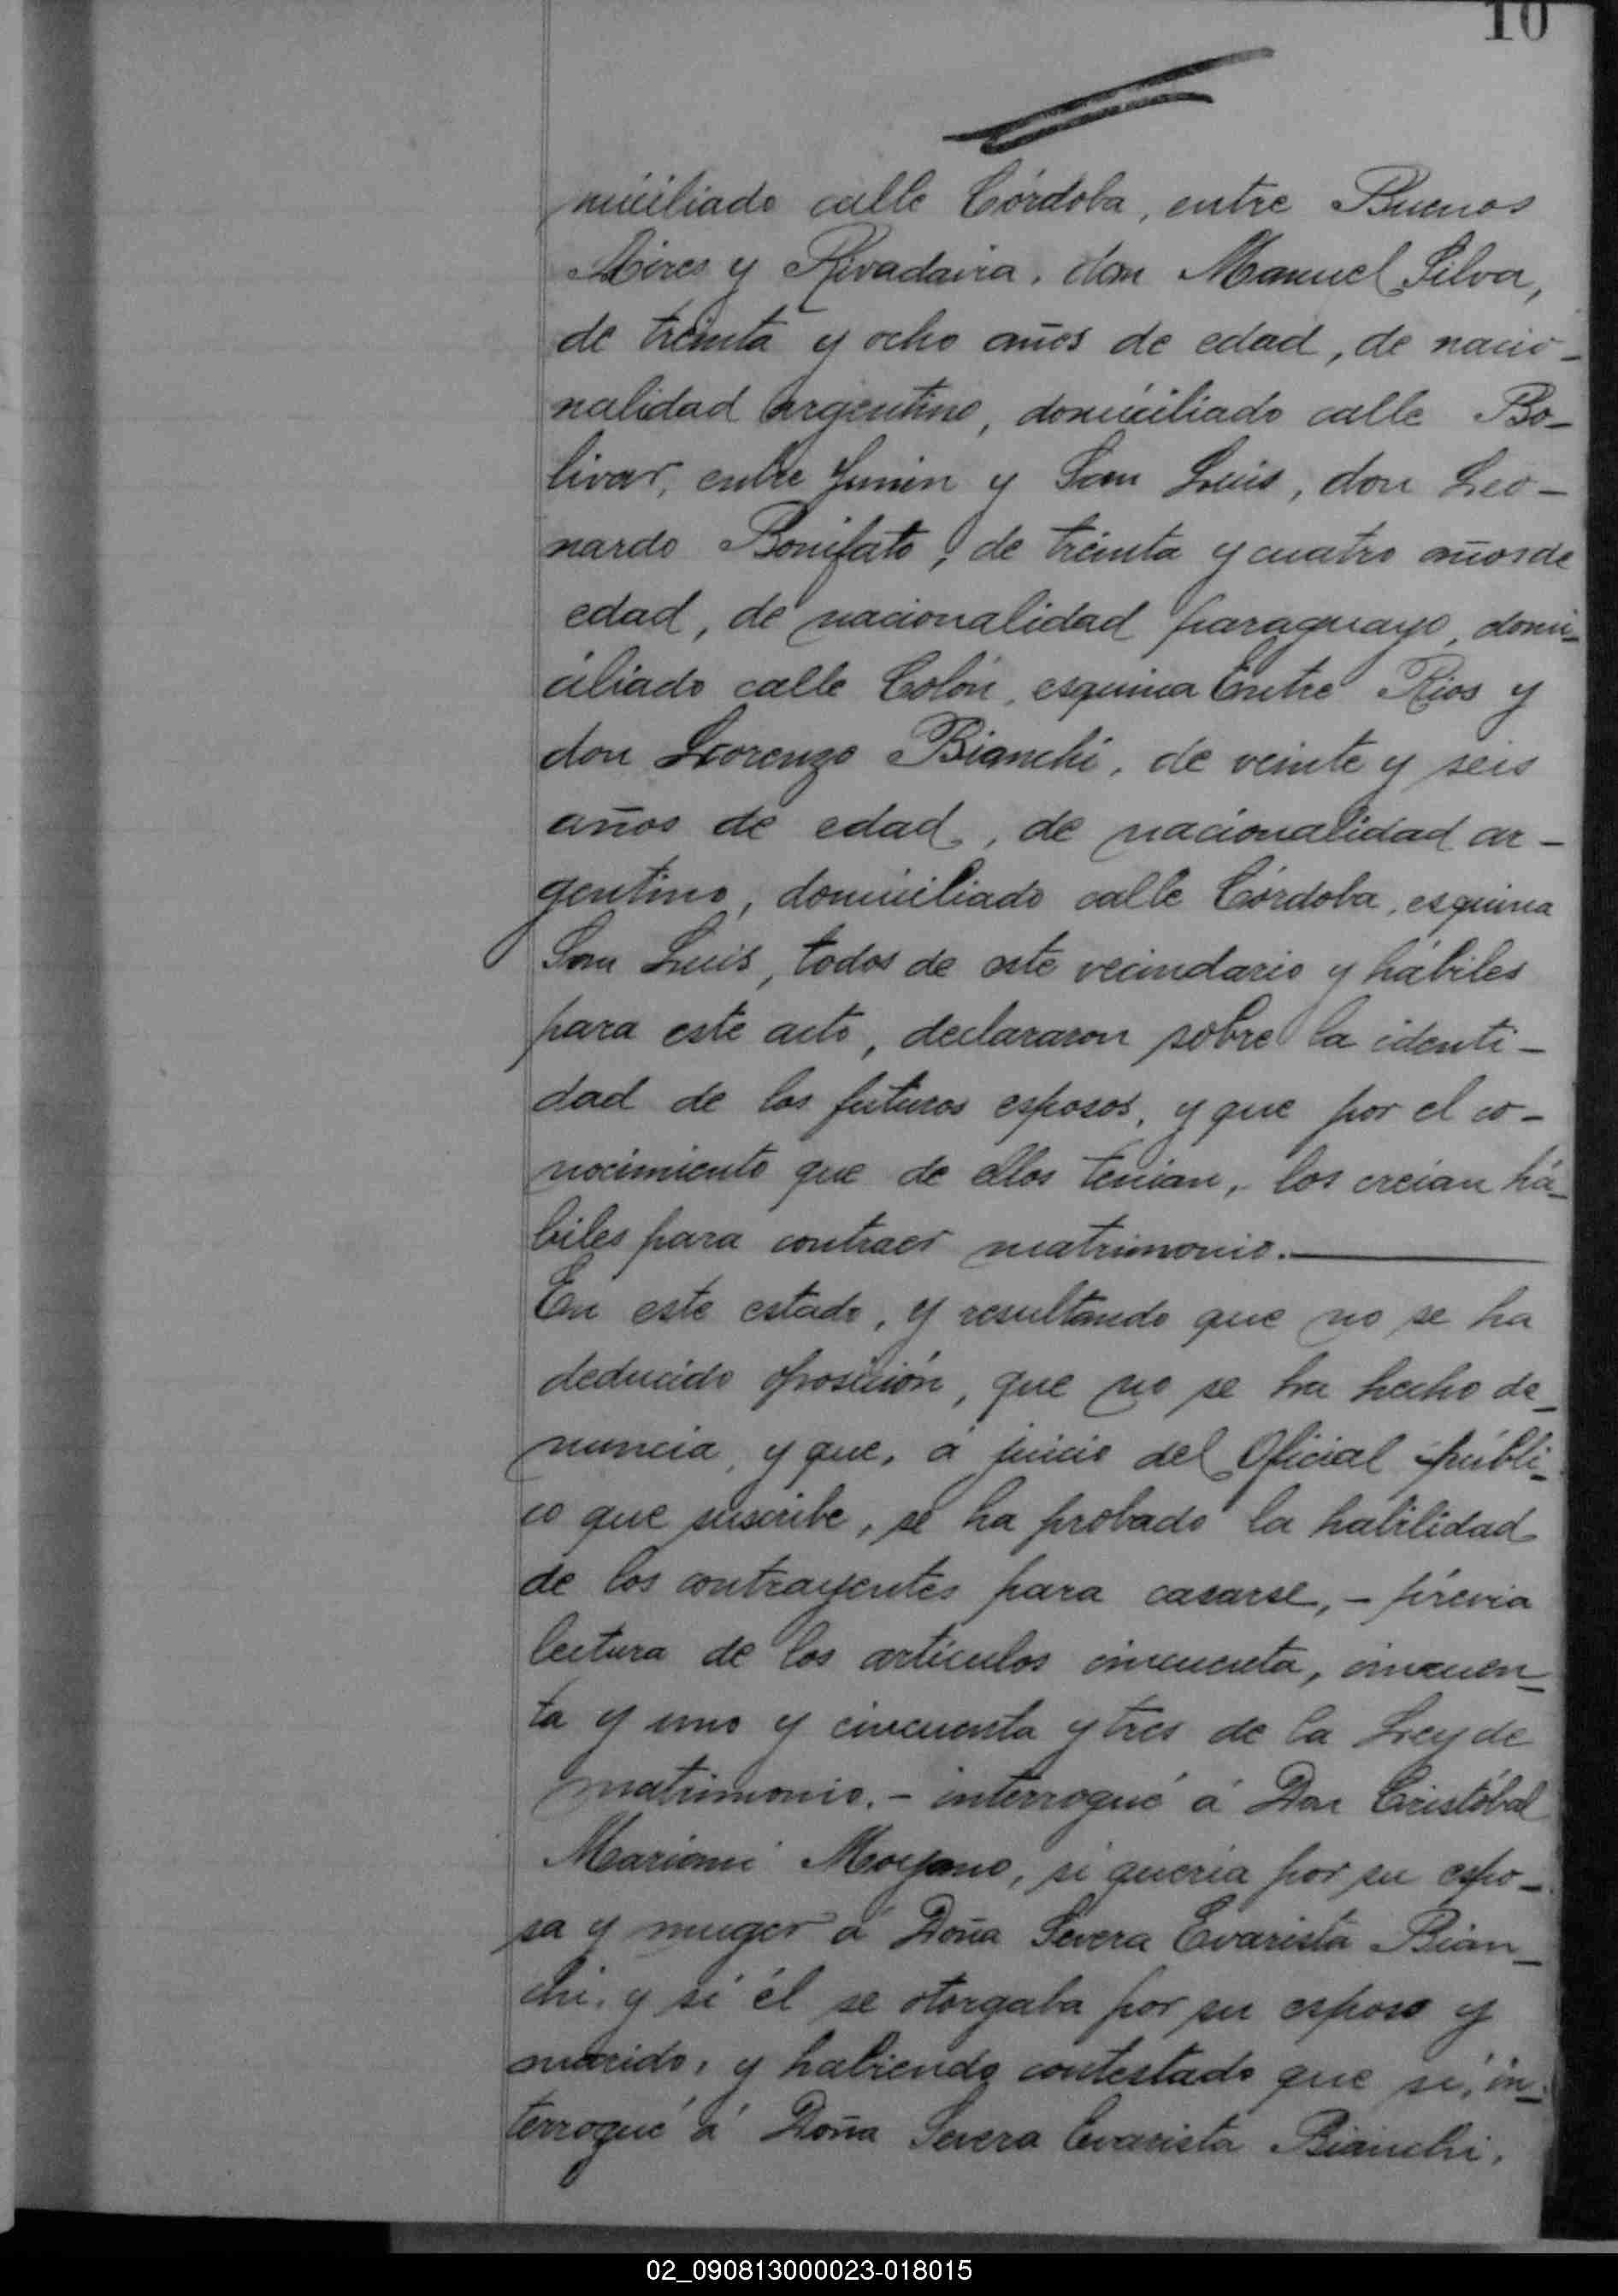 10
miciliado calle Córdoba, entre Buenos
Aires y Rivadavia, don Manuel Silva,
de treinta y ocho años de edad, de nacio-
nalidad argentino, domiciliado calle Bo-
livar, entre Junin y San Luis, don Leo-
nardo Bonifato, de treinta y cuatro años de
edad, de nacionalidad paraguayo, domi-
ciliado calle Colón, esquina Entre Rios y
don Lorenzo Bianchi, de veinte y seis
años de edad, de nacionalidad ar-
gentino, domiciliado calle Córdoba, esquina
San Luis, todos de este vecindario y hábiles
para este acto, declararon sobre la identi-
dad de los futuros esposos, y que por el co-
nocimiento que de ellos tenian, los creian há-
biles para contraer matrimonio.
En este estado, y resultando que no se ha
deducido oposición, que no se ha hecho de-
nuncia, y que, á juicio del Oficial públi-
co que suscribe, se ha probado la habilidad
de los contrayentes para casarse, - prévia
lectura de los artículos cincuenta, cincuen-
ta y uno y cincuenta y tres de la Ley de
matrimonio. - interrogué á Don Cristóbal
Mariani Moyano, si queria por su espo-
sa y muger á Doña Severa Evarista Bian-
chi, y si él se otorgaba por su esposo y
marido, y habiendo contestado que si, in-
terrogué á Doña Severa Evarista Bianchi,
02_090813000023-018015